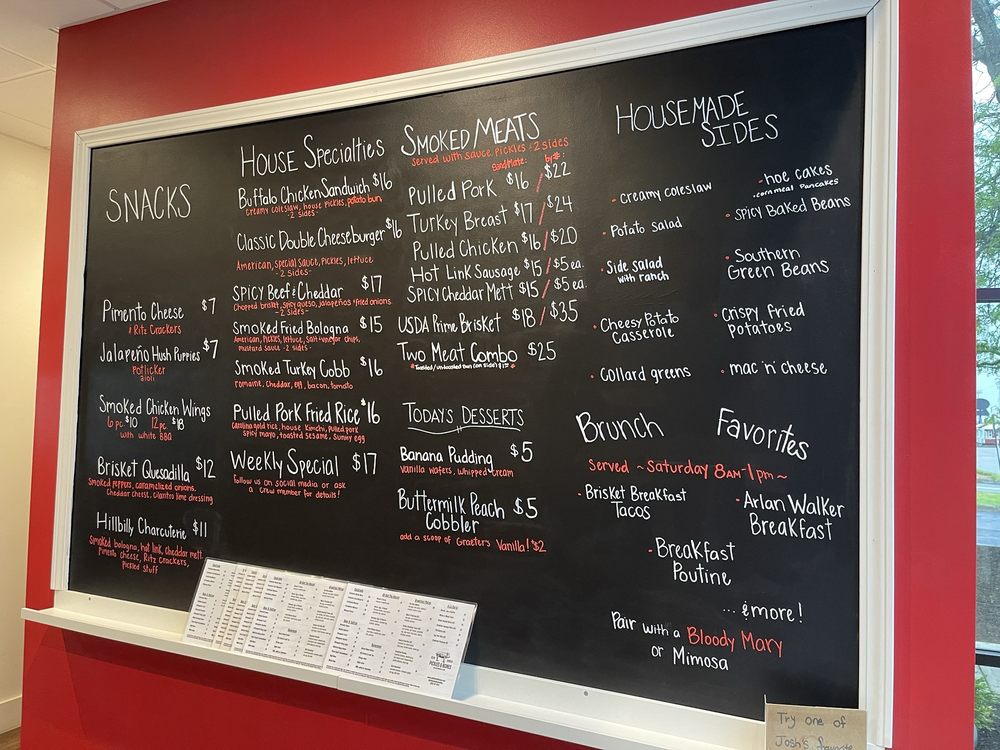 SNACKS
Pimento Cheese $7
& Ritz Crackers
Jalapeño Hush Puppies $7
potlicker
aioli
Smoked Chicken Wings
6 pc $10 12 pc $18
with white BBQ
Brisket Quesadilla $12
Smoked peppers, caramelized onions,
cheddar cheese, cilantro lime dressing
Hillbilly Charcuterie $11
Smoked bologna, hot link, cheddar mett
pimento cheese, Ritz Crackers,
pickled stuff
House Specialties
Buffalo Chicken Sandwich $16
creamy coleslaw, house pickles, potato bun
-2 sides-
Classic Double Cheeseburger $16
American, special sauce, pickles, lettuce
-2 sides-
Spicy Beef & Cheddar $17
chopped brisket, spicy queso, jalapeños & fried onions
-2 sides-
Smoked Fried Bologna $15
American, pickles, lettuce, salt-vinegar chips,
mustard sauce -2 sides-
Smoked Turkey Cobb $16
romaine, cheddar, egg, bacon, tomato
Pulled Pork Fried Rice $16
Carolina gold rice, house kimchi, pulled pork
spicy mayo, toasted sesame, sunny egg
Weekly Special $17
follow us on social media or ask
a crew member for details!
Smoked Meats
served with sauce, pickles & 2 sides
Sand/Plate: by #:
Pulled Pork $16 / $22
Turkey Breast $17 / $24
Pulled Chicken $16 / $20
Hot Link Sausage $15 / $5 ea.
Spicy Cheddar Mett $15 / $5 ea.
USDA Prime Brisket $18 / $35
Two Meat Combo $25
Today's Desserts
Banana Pudding $5
vanilla wafers, whipped cream
Buttermilk Peach $5
Cobbler
add a scoop of Graeter's Vanilla! $2
Housemade
Sides
• creamy coleslaw
• Potato salad
• Side salad
with ranch
• Cheesy Potato
Casserole
• collard greens
• hoe cakes
• corn meal pancakes
• spicy Baked Beans
• Southern
Green Beans
• crispy fried
potatoes
• mac 'n' cheese
Brunch Favorites
Served ~ Saturday 8am-1pm ~
• Brisket Breakfast
Tacos
• Arlan Walker
Breakfast
• Breakfast
Poutine
... & more!
Pair with a Bloody Mary
or Mimosa
PICKLES & BONES
Try one of
Josh's favorite